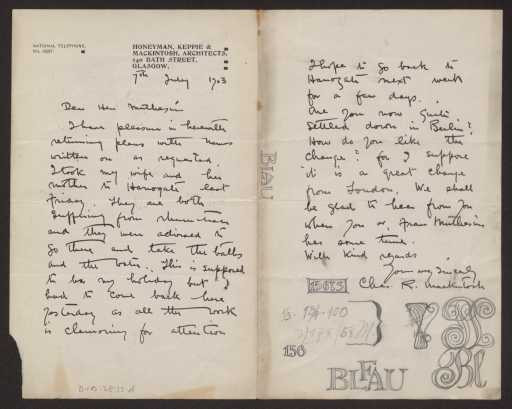 NATIONAL TELEPHONE,
HONEYMAN, KEPPIE &
MACKINTOSH, ARCHITECTS,
140 BATH STREET,
GLASGOW,
7th July 1903
Dear Herr Muthesius
I have pleasure in herewith
returning plans with names
written on as requested.
I took my wife and her
mother to Harrogate last
Friday. They are both
suffering from rheumatism
and they were advised to
go there and take the baths
and the water. This is supposed
to be my holiday but I
had to come back here
yesterday as all the work
is clamouring for attention
I hope to go back to
Harrogate next week
for a few days.
Are you now quite
settled down in Berlin?
How do you like the
change? for I suppose
it is a great change
from London. We shall
be glad to hear from you
when you or Frau Muthesius
has some time.
With kind regards
Yours very sincerely
Chas. R. Mackintosh
BLAU
150
BLFAU
Bl